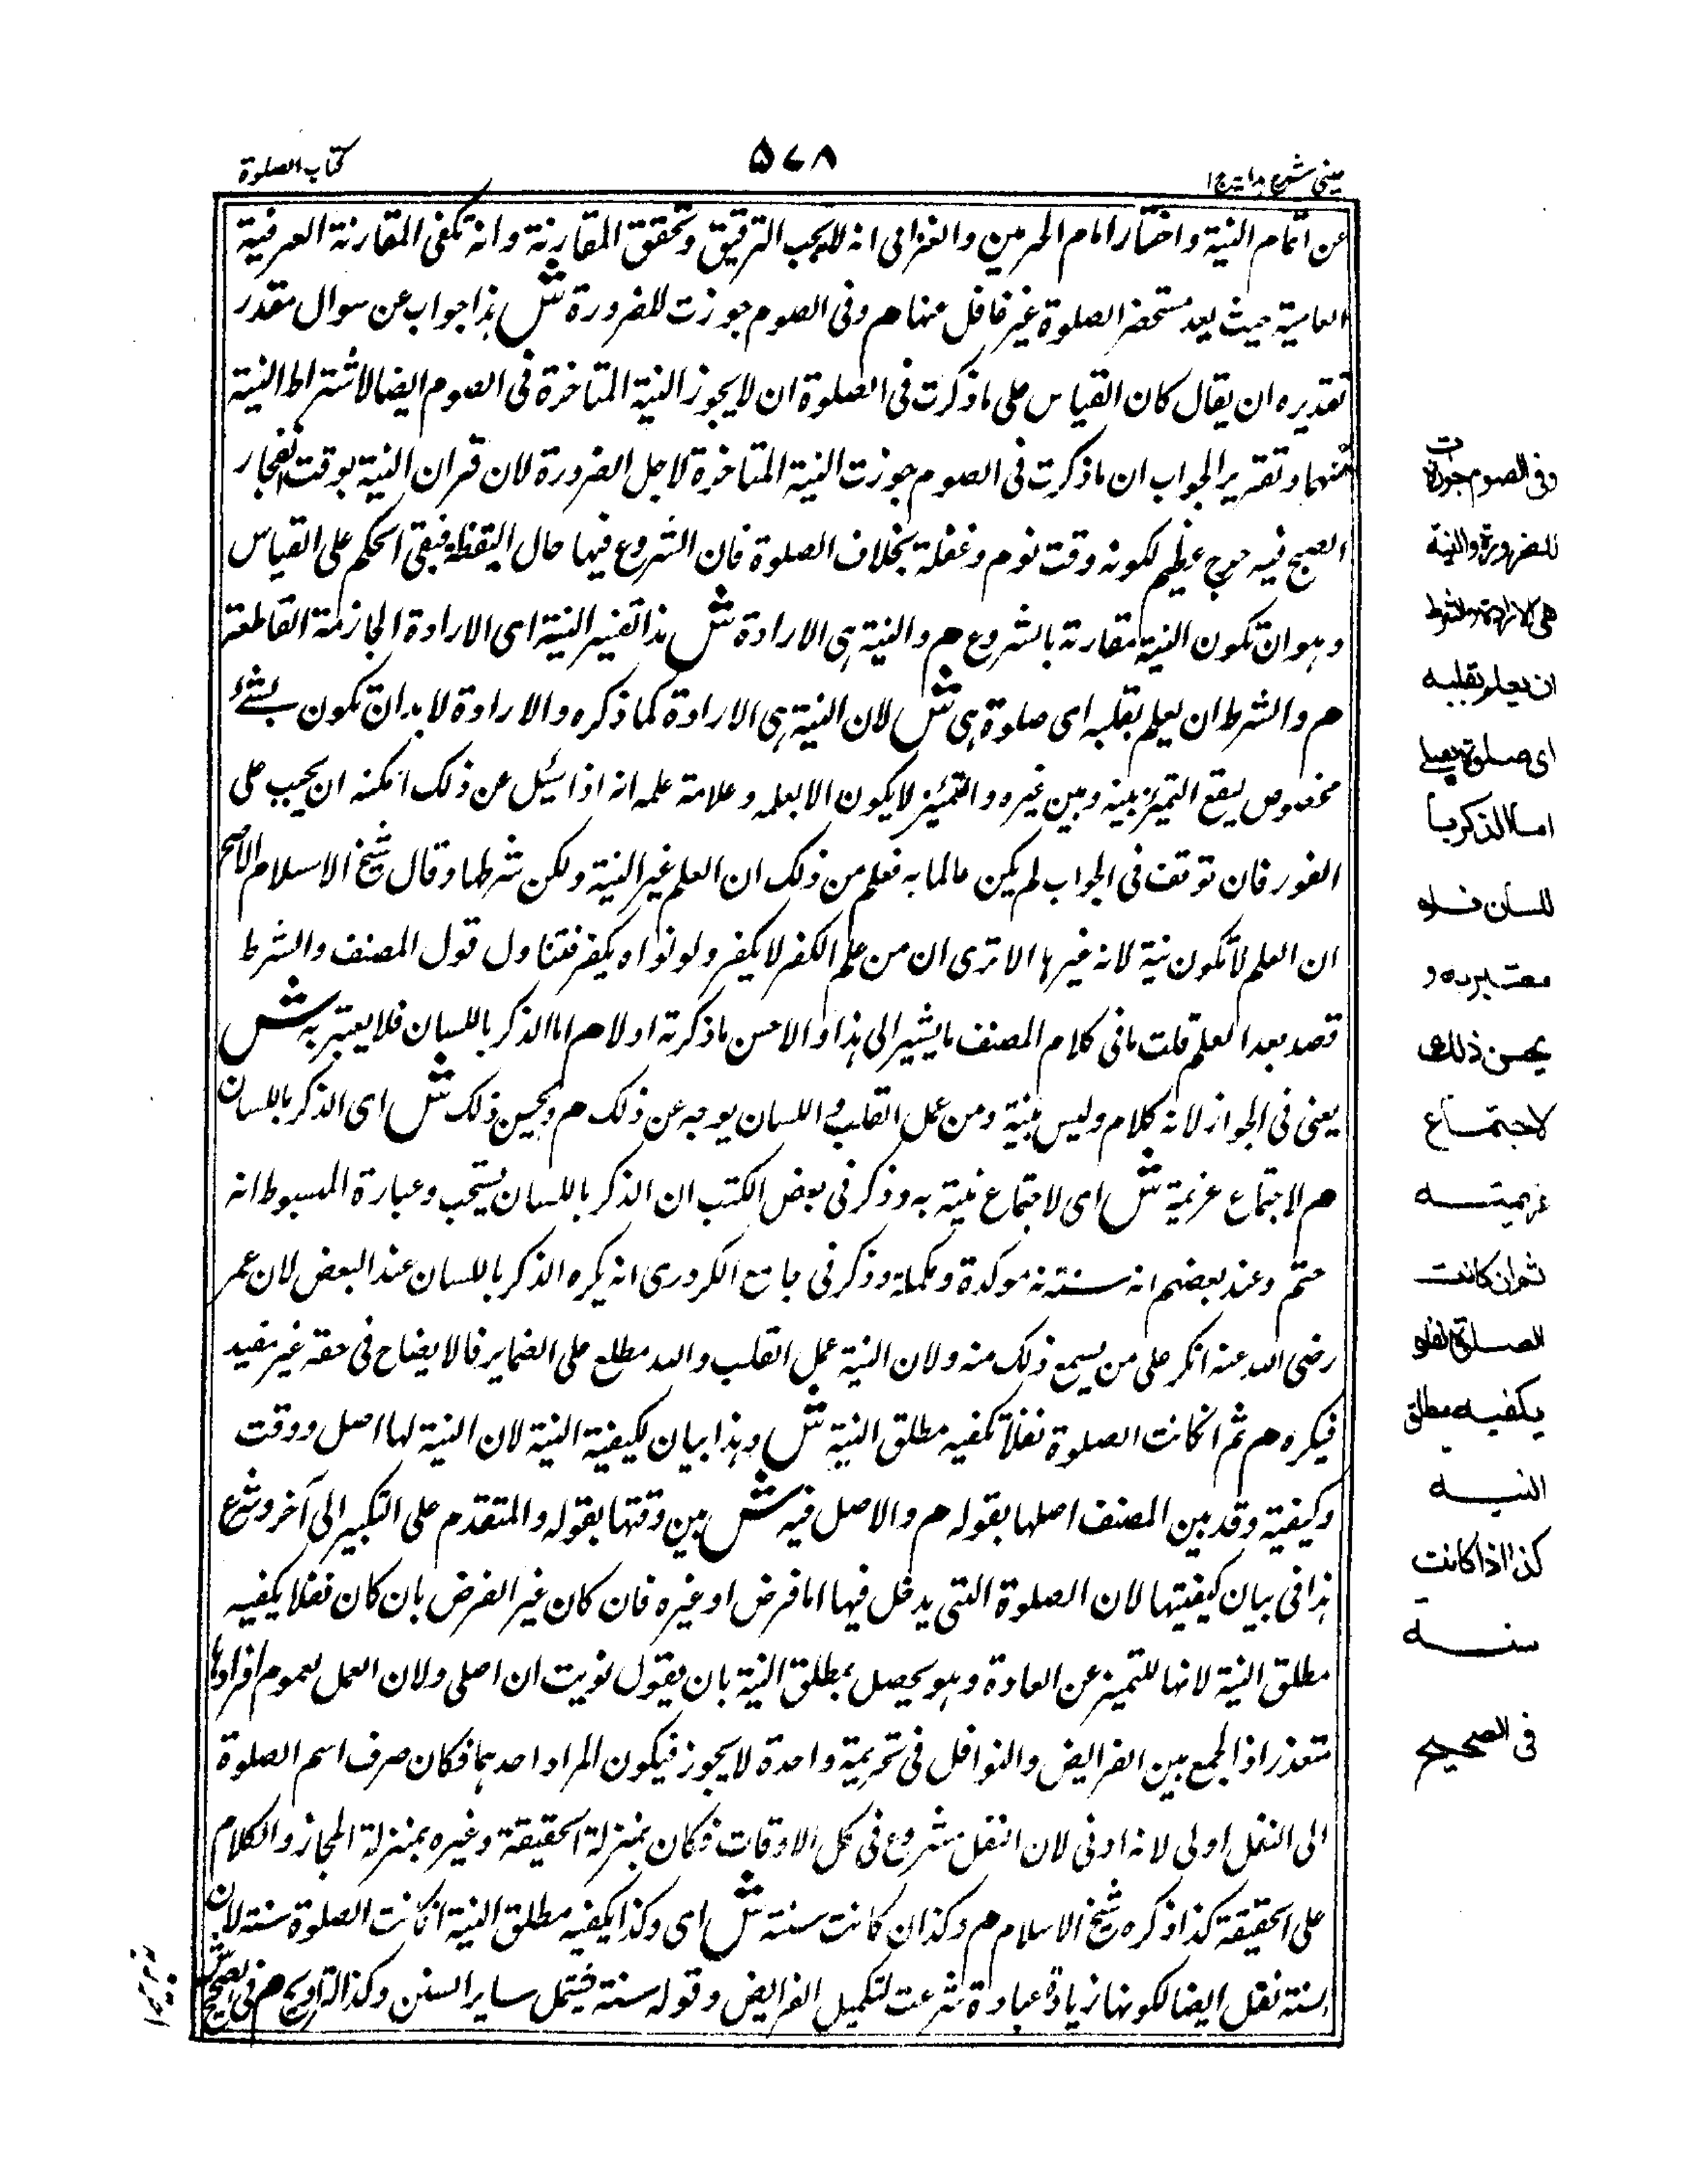 كتاب الصلوة
٥٧٨
عيني شرح هدايه ج ا
عن اتمام النية واختار امام الحرمين والغزالى انه لا يجب الترقيق وتحقق المقارنة وانه تكفى المقارنة العرفية
العامية حيث يعد مستحضر الصلوة غير غافل عنها م وفى الصوم جوزت للضرورة ش هذا جواب عن سوال مقدر
تقديره ان يقال كان القياس على ما ذكرت فى الصلوة ان لا يجوز النية المتاخرة فى الصوم ايضا لاشتراط النية
منهما وتقرير الجواب ان ما ذكرت فى الصوم جوزت النية المتاخرة لاجل الضرورة لان قران النية بوقت انفجار
الصبح فيه حرج عظيم لكونه وقت نوم وغفلة بخلاف الصلوة فان الشروع فيها حال اليقظة فبقى الحكم على القياس
وهو ان تكون النية مقارنة بالشروع م والنية هى الارادة ش هذا تفسير النية اى الارادة الجازمة القاطعة
م والشرط ان يعلم بقلبه اى صلوة هى ش لان النية هى الارادة كما ذكره والارادة لا بد ان تكون بشئ
مخصوص يقع التميز بينه وبين غيره والتميز لا يكون الا بعلمه وعلامة علمه انه اذا سئل عن ذلك امكنه ان يجيب على
الفور فان توقف فى الجواب لم يكن عالما به فعلم من ذلك ان العلم غير النية ولكن شرطها وقال شيخ الاسلام الاصح
ان العلم لا تكون نية لانه غيرها الا ترى ان من علم الكفر لا يكفر ولو نواه يكفر فتناول قول المصنف والشرط
قصد بعد العلم قلت ما فى كلام المصنف ما يشير الى هذا والاحسن ما ذكرته اولا م اما الذكر باللسان فلا يعتبر به ش
يعنى فى الجواز لانه كلام وليس بنية ومن عمل القلب و اللسان يوجه عن ذلك م ويحسن ذلك ش اى الذكر باللسان
م لاجتماع عزيمة ش اى لاجتماع نية به وذكر فى بعض الكتب ان الذكر باللسان يستحب وعبارة المبسوط انه
حتم وعند بعضهم انه سنته موكدة ومكملة وذكر فى جامع الكردرى انه يكره الذكر باللسان عند البعض لان عمر
رضى الله عنه انكر على من يسمع ذلك منه ولان النية عمل القلب والله مطلع على الضماير فالايضاح فى حقه غير مفيد
فيكره م ثم ان كانت الصلوة نفلا تكفيه مطلق النية ش وهذا بيان لكيفية النية لان النية لها اصل ووقت
وكيفية وقد بين المصنف اصلها بقوله م والاصل فيه ش بين وقتها بقوله والمتقدم على التكبير الى آخر وشرع
هذا فى بيان كيفيتها لان الصلوة التى يدخل فيها اما فرض او غيره فان كان غير الفرض بان كان نفلا يكفيه
مطلق النية لانها للتميز عن العادة وهو يحصل بمطلق النية بان يقول نويت ان اصلى ولان العمل بعموم افرادها
متعذر اذ الجمع بين الفرايض والنوافل فى تحريمة واحدة لا يجوز فيكون المراد احدهما فكان صرف اسم الصلوة
الى النفل اولى لانه ادنى لان النفل مشروع فى كل الاوقات فكان بمنزلة الحقيقة وغيره بمنزلة المجاز والكلام
على الحقيقة كذا ذكره شيخ الاسلام م وكذا ان كانت سنة ش اى وكذا يكفيه مطلق النية ان كانت الصلوة سنة لان
السنة نفل ايضا لكونها زيادة عبادة شرعت لتكميل الفرايض وقوله سنة فيشمل ساير السنن وكذا التراويح م فى الصحيح
وفى الصوم جوزت
للضرورة والنية
هى الارادة والشرط
ان يعلم بقلبه
اى صلوة يصلى
اما الذكر با
للسان فلا
معتبر به و
يحسن ذلك
لاجتماع
عزيمته
ثم ان كانت
الصلوة نفلا
يكفيه مطلق
النيه
كذا اذا كانت
سنه
فى الصحيح